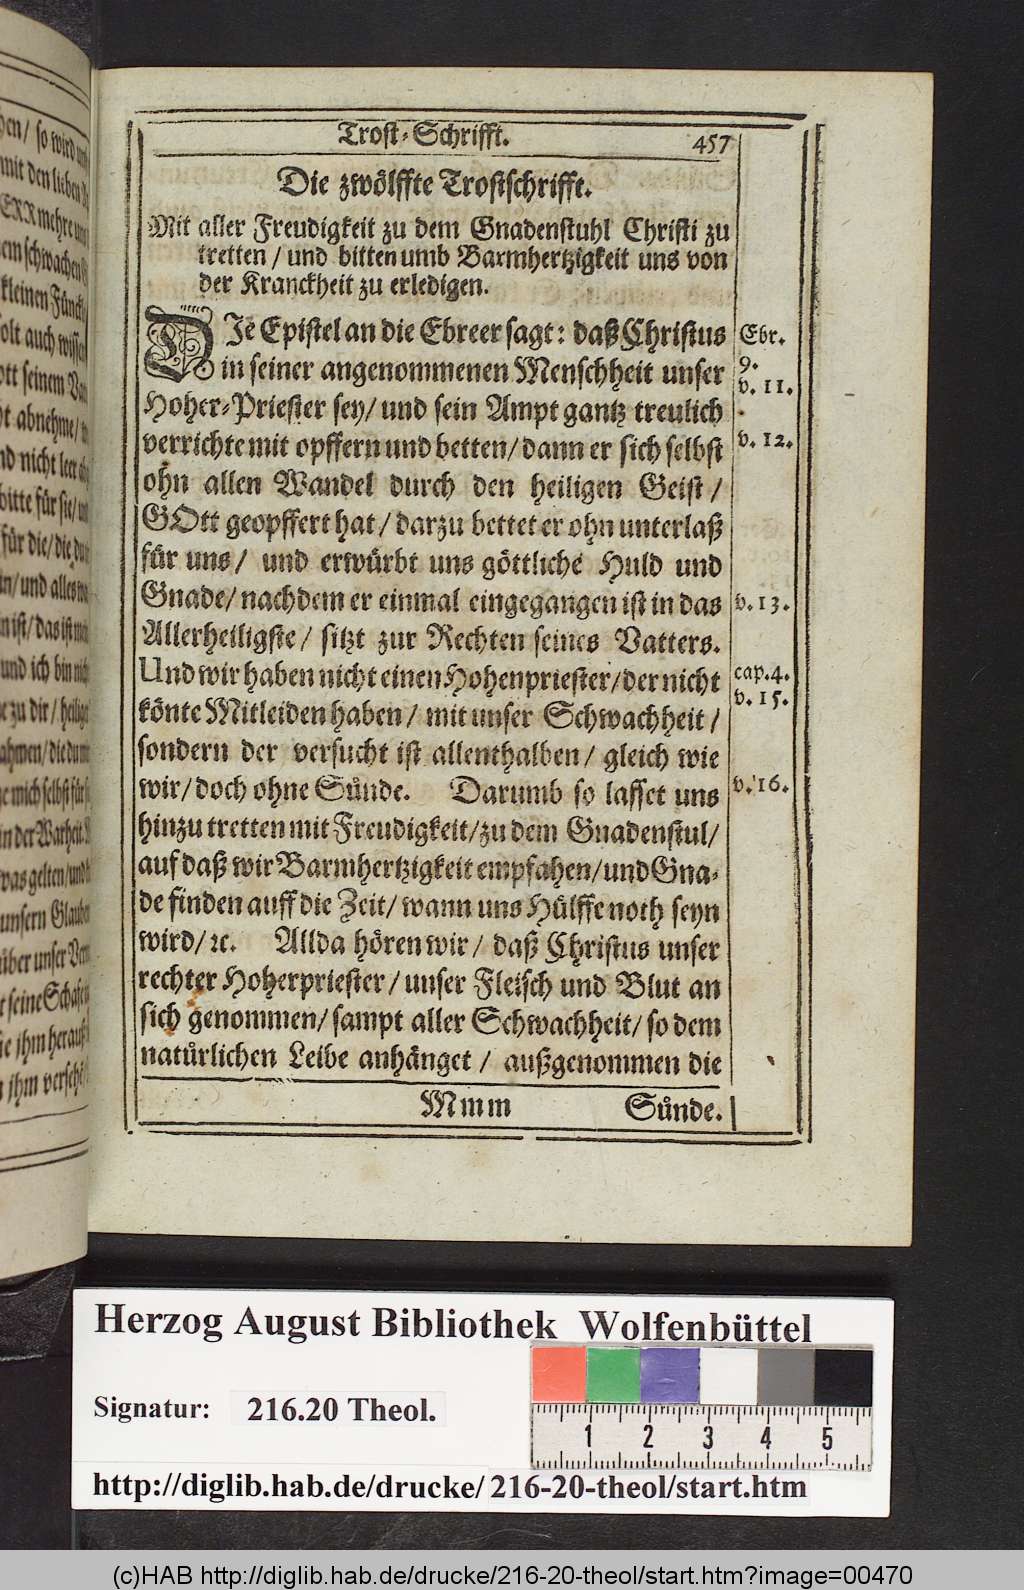 Trost-Schrifft. 457
Die zwölffte Trostschrifft.
Mit aller Freudigkeit zu dem Gnadenstuhl Christi zu
tretten / und bitten umb Barmhertzigkeit uns von
der Kranckheit zu erledigen.
DIe Epistel an die Ebreer sagt: daß Christus
in seiner angenommenen Menschheit unser
Hoher-Priester sey / und sein Ampt gantz treulich
verrichte mit opffern und betten / dann er sich selbst
ohn allen Wandel durch den heiligen Geist /
GOtt geopffert hat / darzu bettet er ohn unterlaß
für uns / und erwürbt uns göttliche Huld und
Gnade / nachdem er einmal eingegangen ist in das
Allerheiligste / sitzt zur Rechten seines Vatters.
Und wir haben nicht einen Hohenpriester / der nicht
könte Mitleiden haben / mit unser Schwachheit /
sondern der versucht ist allenthalben / gleich wie
wir / doch ohne Sünde. Darumb so lasset uns
hinzu tretten mit Freudigkeit / zu dem Gnadenstul /
auf daß wir Barmhertzigkeit empfahen / und Gna-
de finden auff die Zeit / wann uns Hülffe noth seyn
wird / ꝛc. Allda hören wir / daß Christus unser
rechter Hoherpriester / unser Fleisch und Blut an
sich genommen / sampt aller Schwachheit / so dem
natürlichen Leibe anhänget / außgenommen die
Mmm Sünde.
Ebr.
9.
v. 11.
v. 12.
v. 13.
cap. 4.
v. 15.
v. 16.
Herzog August Bibliothek Wolfenbüttel
Signatur: 216.20 Theol.
1 2 3 4 5
http://diglib.hab.de/drucke/ 216-20-theol/start.htm
(c)HAB http://diglib.hab.de/drucke/216-20-theol/start.htm?image=00470